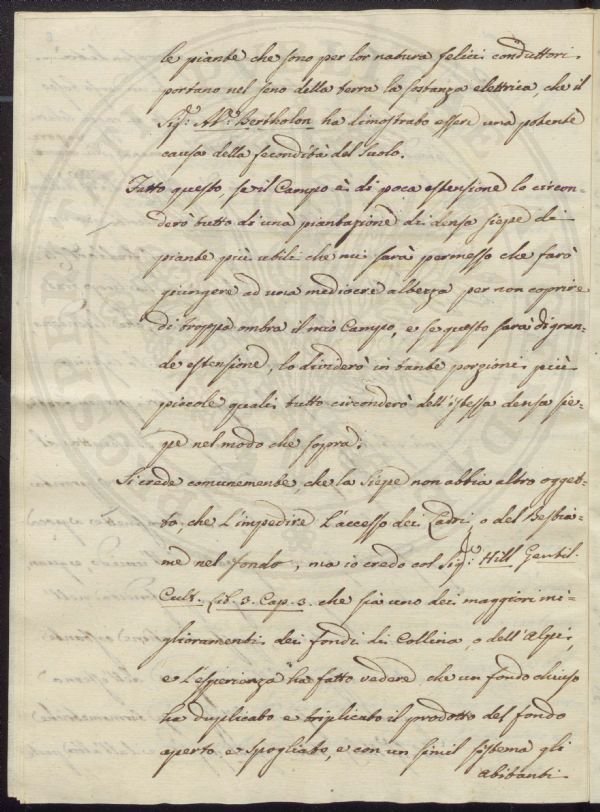 le piante che sono per lor natura felici conduttori
portano nel seno della terra la sostanza elettrica, che il
Sig.r Ab.e Bertholon ha dimostrato essere una potente
causa della fecondità del Suolo.
Fatto questo, se il Campo è di poca estensione lo circon-
derò tutto di una piantazione di densa siepe di
piante più utili che mi sarà permesso che farò
giungere ad una mediocre altezza per non coprire
di troppa ombra il mio Campo, e se questo sarà di gran-
de estensione, lo dividerò in tante porzioni più
piccole quali tutto circonderò dell'istessa densa sie-
pe nel modo che sopra.
Si crede comunemente, che la Siepe non abbia altro ogget-
to, che l'impedire l'accesso dei Ladri, o del Bestia-
me nel fondo, ma io credo col Sig.r Hill Gentil.
Cult. Lib. 3. Cap. 3. che sia uno dei maggiori mi-
glioramenti dei fondi di Collina, o dell'Alpi,
e l'esperienza ha fatto vedere che un fondo chiuso
ha duplicato e triplicato il prodotto del fondo
aperto e spogliato, e con un simil sistema gli
abitanti